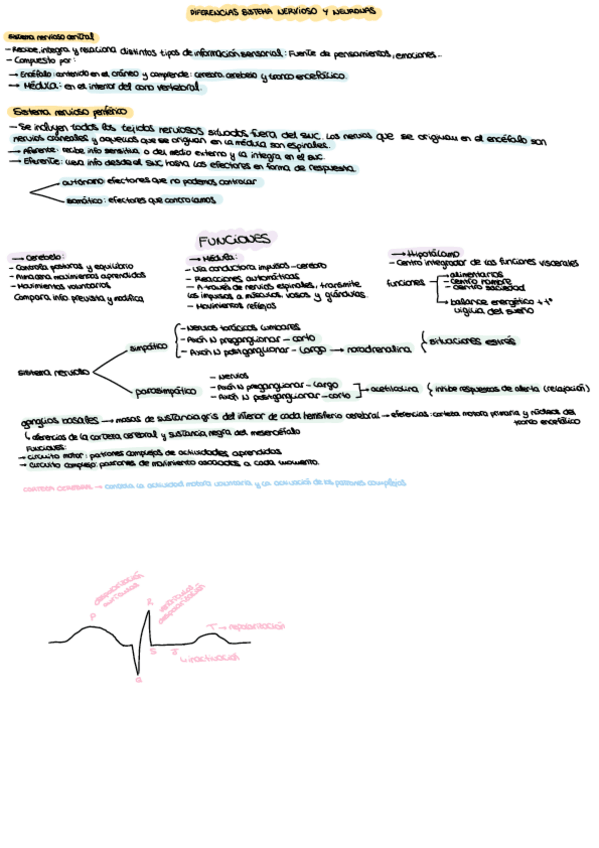 DIFERENCIAS SISTEMA NERVIOSO Y NEURONAS
Sistema nervioso central
- Recibe, integra y relaciona distintos tipos de información sensorial: Fuente de pensamientos, emociones...
- Compuesto por:
→ Encéfalo: contenido en el cráneo y comprende: cerebro, cerebelo y tronco encefálico.
→ Médula: en el interior del cono vertebral.
Sistema nervioso periférico
- Se incluyen todos los tejidos nerviosos situados fuera del SNC. Los nervios que se originan en el encéfalo son
nervios craneales y aquellos que se originan en la médula son espinales.
→ Aferente: recibe info sensitiva o del medio externo y la integra en el SNC.
→ Eferente: lleva info desde el SNC hasta los efectores en forma de respuesta.
autónomo: efectores que no podemos controlar
somático: efectores que controlamos
FUNCIONES
→ Cerebelo:
- Controla posturas y equilibrio
- Almacena movimientos aprendidos
- Movimientos voluntarios
Compara info prevista y modifica
→ Médula:
- Vía conductora impulsos - cerebro
- Reacciones automáticas
- A través de nervios espinales, transmite
los impulsos a músculos, vasos y glándulas.
- Movimientos reflejos
→ Hipotálamo
- Centro integrador de las funciones viscerales
funciones
alimentarias
- centro hambre
- centro saciedad
balance energético + tª
vigilia del sueño
sistema nervioso
simpático
- Nervios torácicos lumbares
- Axón N preganglionar - corto
- Axón N postganglionar - largo → noradrenalina
situaciones estrés
parasimpático
- Nervios
- Axón N preganglionar - largo
- Axón N postganglionar - corto
→ acetilcolina
inhibe respuestas de alerta (relajación)
ganglios basales → masas de sustancia gris del interior de cada hemisferio cerebral → eferencias: corteza motora primaria y núcleos del
tronco encefálico
aferencias de la corteza cerebral y sustancia negra del mesencéfalo
Funciones:
→ circuito motor: patrones complejos de actividades aprendidas
→ circuito complejo: patrones de movimiento asociados a cada momento.
CORTEZA CEREBRAL → controla la actividad motora voluntaria y la activación de los patrones complejos
despolarización
aurículas
P
R
ventrículos
despolarización
T → repolarización
S
Q
inactivación